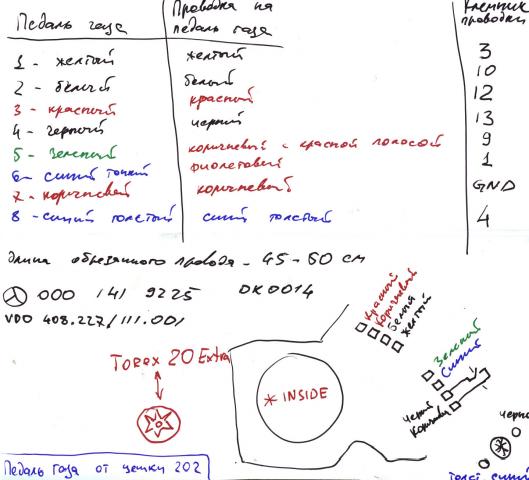 Педаль газа
Проводка на педаль газа
Клеммник проводки
1 - желтый желтый 3
2 - белый белый 10
3 - красный красный 12
4 - черный черный 13
5 - зеленый коричневый с красной полосой 9
6 - синий тонкий фиолетовый 1
7 - коричневый коричневый GND
8 - синий толстый синий толстый 4
Длина обрезанного провода - 45 - 60 см
000 141 9225 DK0014
VDO 408.227/111.001
Красный
Коричневый
Белый
Желтый
Torex 20 Extra
* INSIDE
Зеленый
Синий
Черный
Коричневый
черн
Толст. синий
Педаль газа от цешки 202